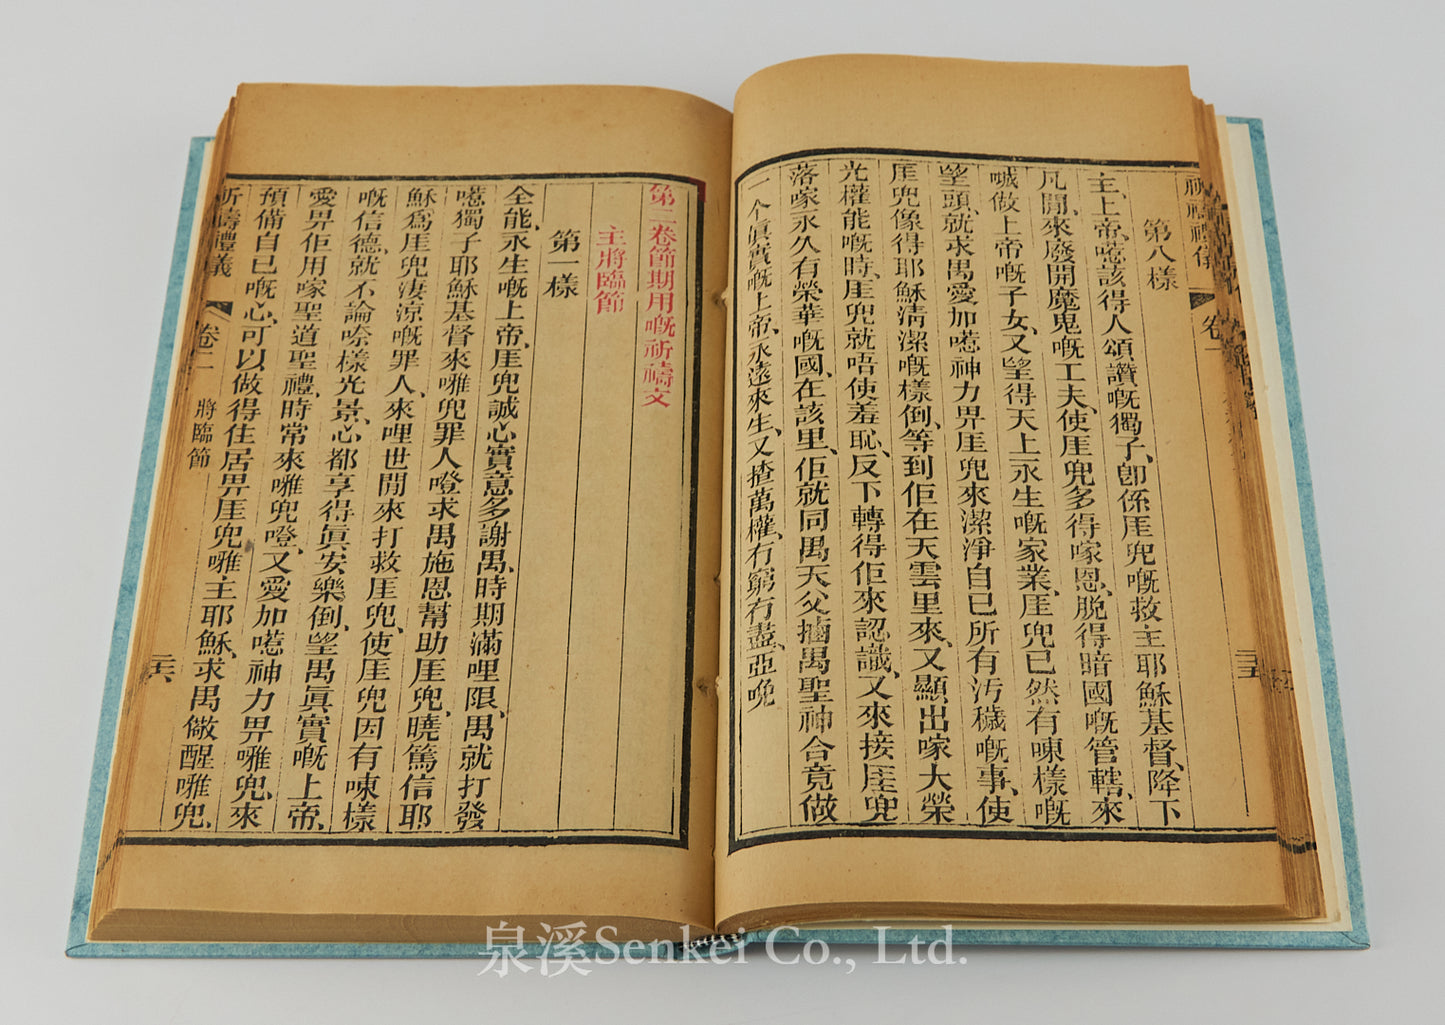 祈禱禮儀 卷一 二十五
第八樣
主上帝、嗯該得人頌讚嘅獨子、卽係𠊎兜嘅救主耶穌基督、降下
凡間、來廢開魔鬼嘅工夫、使𠊎兜多得嚟恩、脫得暗國嘅管轄、來
喊做上帝嘅子女、又望得天上永生嘅家業、𠊎兜已然有㖠樣嘅
望頭、就求禺愛加嗯神力畀𠊎兜來潔淨自己所有汚穢嘅事、使
𠊎兜像得耶穌淸潔嘅樣倒、等到佢在天雲里來、又顯出嚟大榮
光權能嘅時、𠊎兜就唔使羞恥、反下轉得佢來認識、又來接𠊎兜
落嚟永久有榮華嘅國、在該里、佢就同禺天父㧯禺聖神合竟做
一个眞實嘅上帝、永遠來生、又揸萬權、冇窮冇盡、亞𠷂
第二卷節期用嘅祈禱文
主將臨節
第一樣
全能、永生嘅上帝、𠊎兜誠心實意多謝禺、時期滿哩限、禺就打發
嗯獨子耶穌基督來嗱兜罪人噔、求禺施恩幫助𠊎兜、曉篤信耶
穌爲𠊎兜淒涼嘅罪人、來哩世間來打救𠊎兜、使𠊎兜因有㖠樣
嘅信德、就不論嗏樣光景、心都享得眞安樂倒、望禺眞實嘅上帝、
愛畀佢用嚟聖道聖禮、時常來嗱兜噔、又愛加嗯神力畀嗱兜、來
預備自己嘅心、可以做得住居畀𠊎兜嗱主耶穌、求禺儆醒嗱兜、
祈禱禮儀 卷二 將臨節 二十六
泉溪Senkei Co., Ltd.